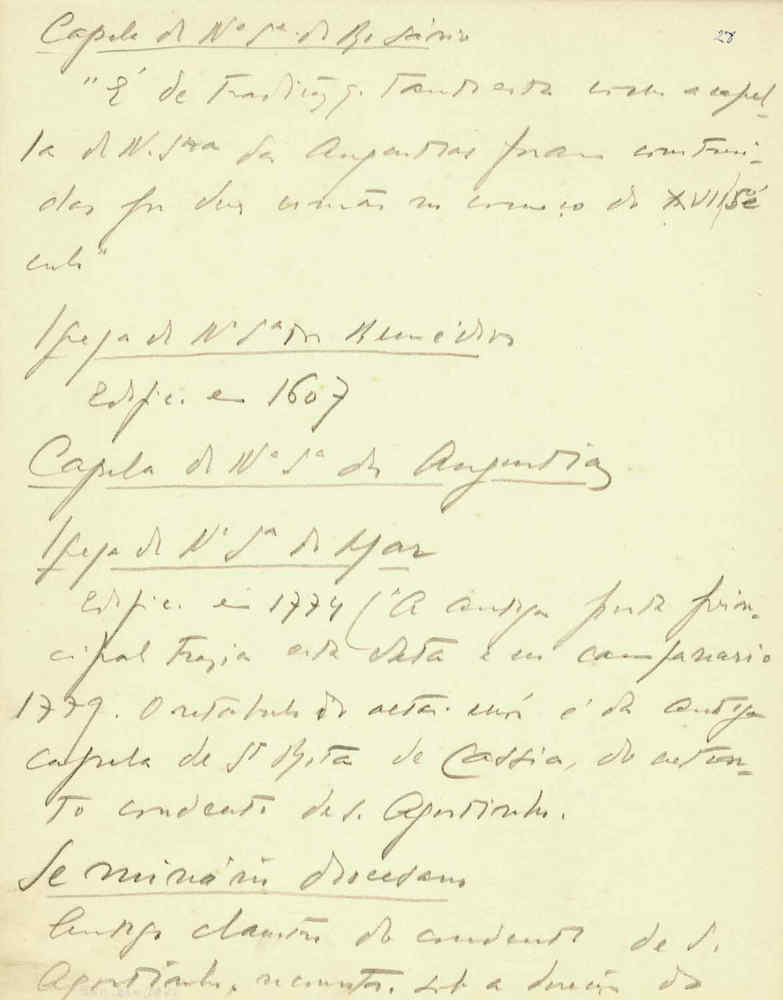 28
Capela de Nª Sª do Rosário
"É de tradição q. tanto esta como a capel-
la de N. Sra das Angustias foram construi-
das por dois irmãos no começo do XVII sé
culo"
Igreja de Nª Sª dos Remédios
Edific. em 1607
Capela de Nª Sª das Angustias
Igreja de Nª Sª do Mar
Edific. em 1774 ("A antiga porta prin-
cipal trazia esta data e no campanario
1779. O retabulo do altar-mór é da antiga
capela de Sta Rita de Cassia, do extin-
to convento de S. Agostinho.
Seminário diocesano
Antigo claustro do convento de S.
Agostinho, sob a direcção do